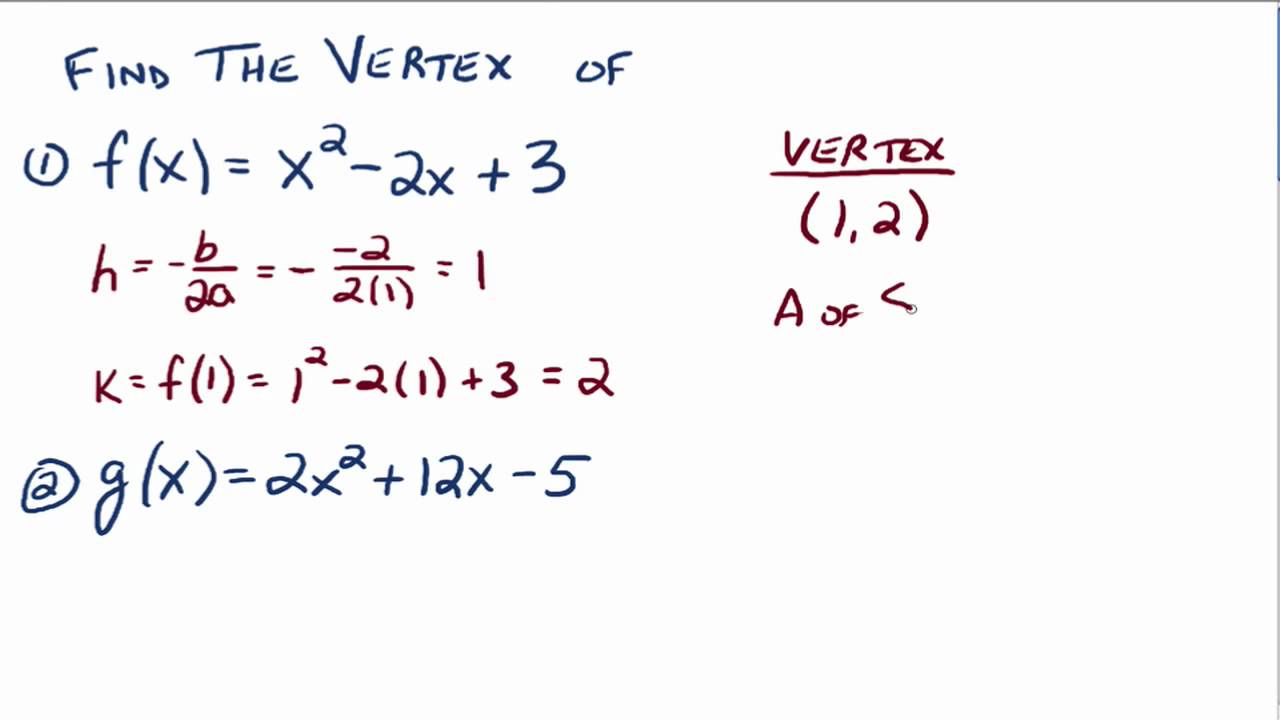 FIND THE VERTEX OF
① f(x) = x² - 2x + 3
h = -b/2a = - -2/2(1) = 1
K = f(1) = 1² - 2(1) + 3 = 2
② g(x) = 2x² + 12x - 5
VERTEX
(1, 2)
A OF